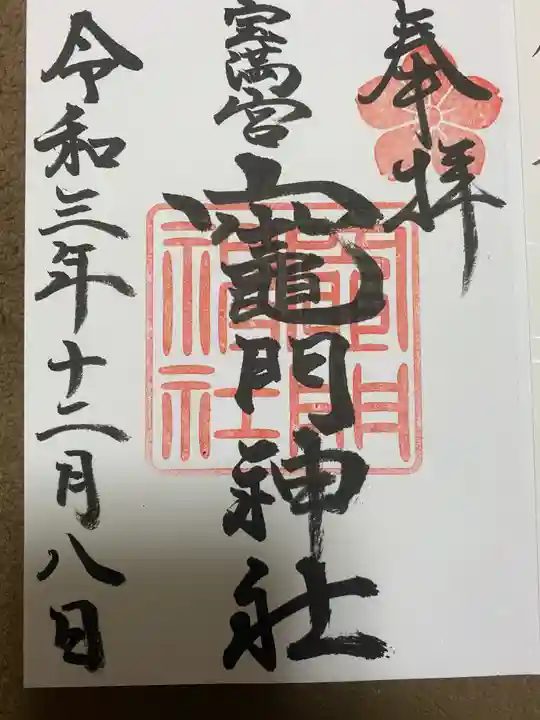 奉拝
宝満宮
竈門神社
令和三年十二月八日